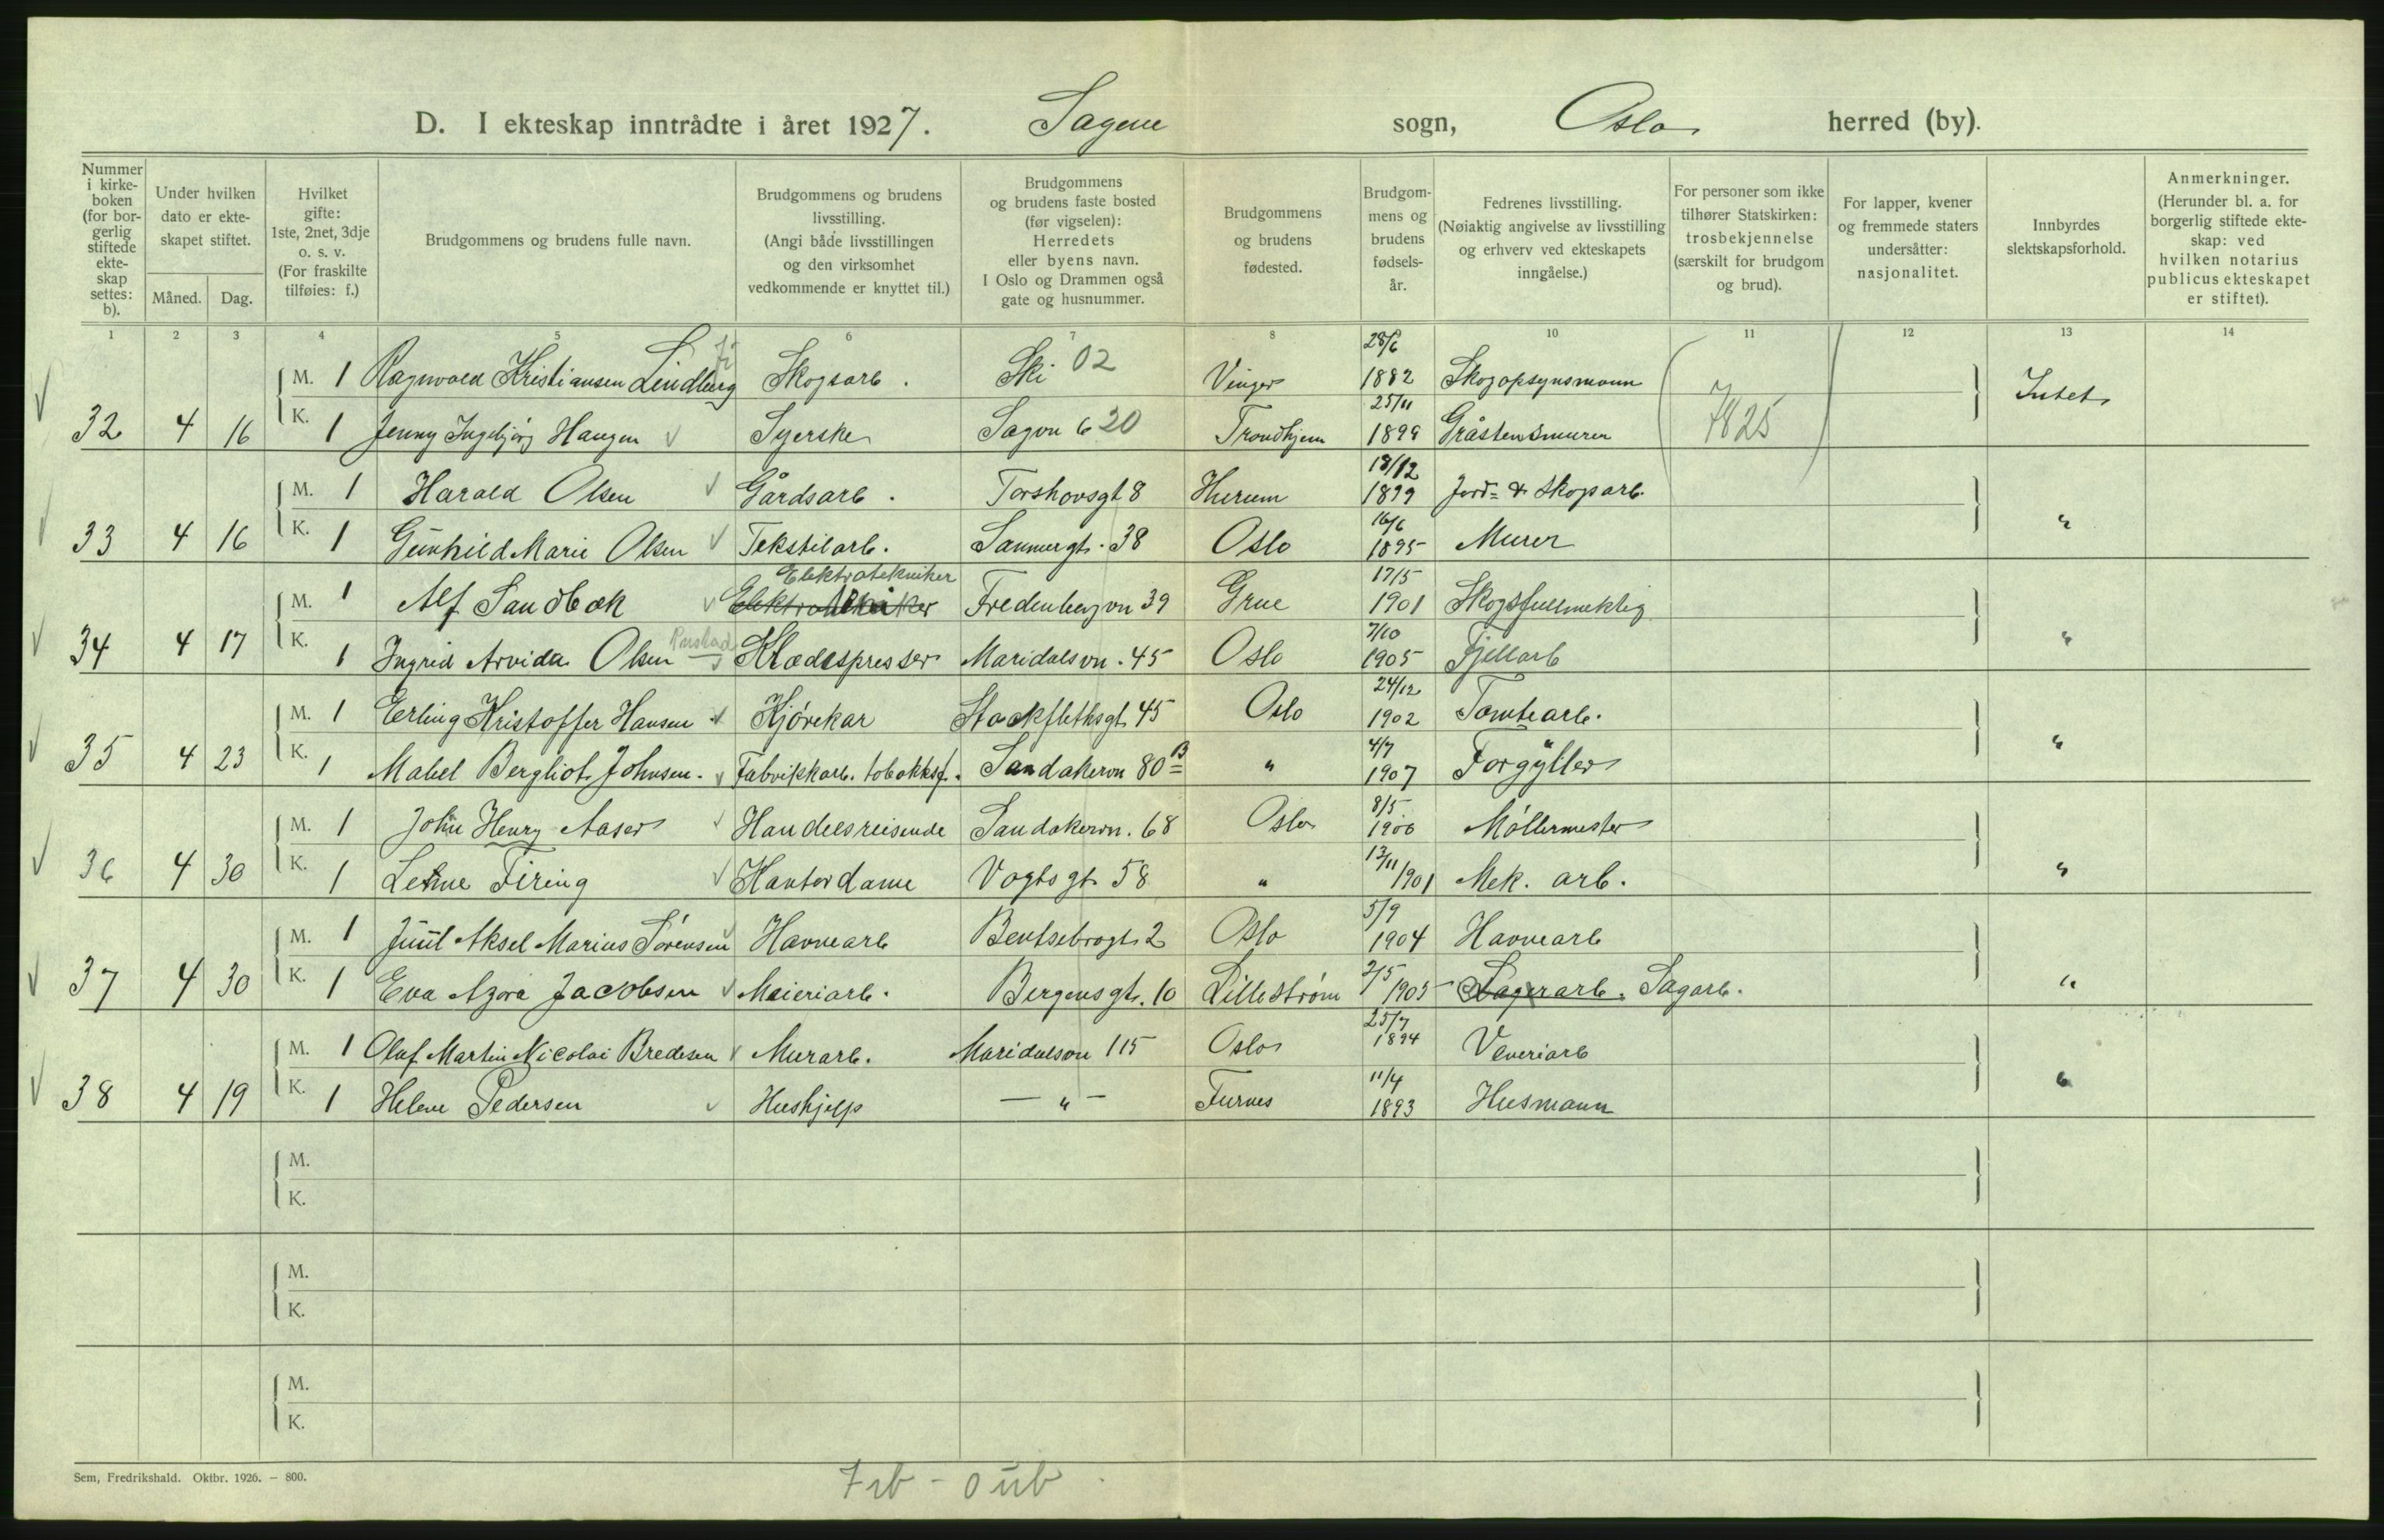 D. I ekteskap inntrådte i året 1927. Sagene sogn, Oslo herred (by).
Nummer i kirke- boken (for bor- gerlig stiftede ekte- skap settes: b).
Under hvilken dato er ekte- skapet stiftet.
Måned. Dag.
Hvilket gifte: 1ste, 2net, 3dje o. s. v. (For fraskilte tilføies: f.)
Brudgommens og brudens fulle navn.
Brudgommens og brudens livsstilling. (Angi både livsstillingen og den virksomhet vedkommende er knyttet til.)
Brudgommens og brudens faste bosted (før vigselen): Herredets eller byens navn. I Oslo og Drammen også gate og husnummer.
Brudgommens og brudens fødested.
Brudgom- mens og brudens fødsels- år.
Fedrenes livsstilling. (Nøiaktig angivelse av livsstilling og erhverv ved ekteskapets inngåelse.)
For personer som ikke tilhører Statskirken: trosbekjennelse (særskilt for brudgom og brud).
For lapper, kvener og fremmede staters undersåtter: nasjonalitet.
Innbyrdes slektskapsforhold.
Anmerkninger. (Herunder bl. a. for borgerlig stiftede ekte- skap: ved hvilken notarius publicus ekteskapet er stiftet).
1 2 3 4 5 6 7 8 9 10 11 12 13 14
M. 1 Ragnvald Kristiansen Lindberg Skogsarb. Ski 02 Vinger 28/6 1882 Skogopsynsmann
32 4 16 K. 1 Jenny Ingebjørg Haugen Syerske Sagvn 6 20 Trondhjem 25/11 1899 Gråstensmurer 7825 Intet
M. 1 Harald Olsen Gårdsarb. Torshovsgt 8 Hurum 18/12 1899 Jord- & skogsarb.
33 4 16 K. 1 Gunhild Marie Olsen Tekstilarb. Sannergt. 38 Oslo 16/6 1895 Murer "
Elektrotekniker
M. 1 Alf Sandbæk Elektrotekniker Fredenborgvn 39 Grue 17/5 1901 Skogsfullmektig
34 4 17 K. 1 Ingrid Arvida Olsen Rustad Klædespresser Maridalsvn. 45 Oslo 7/10 1905 Fjellarb "
M. 1 Erling Kristoffer Hansen Kjørekar Stockflethsgt. 45 Oslo 24/12 1902 Tomtearb.
35 4 23 K. 1 Mabel Bergliot Johnsen. Fabrikkarb. tobakksf. Sandakervn 80 B " 4/7 1907 Forgyller "
M. 1 John Henry Aaser Handelsreisende Sandakervn. 68 Oslo 8/5 1900 Møllermester
36 4 30 K. 1 Firing Kontordame Vogtsgt. 58 " 13/11 1901 Mek. arb. "
M. 1 Juul Aksel Marius Sørensen Havnearb Bentsebrogt. 2 Oslo 5/9 1904 Havnearb
37 4 30 K. 1 Eva Azora Jacobsen Meieriarb. Bergensgt. 10 Lillestrøm 2/5 1905 Lagerarb. Sagarb. "
M. 1 Olaf Martin Nicolai Bredesen Murarb. Maridalsvn 115 Oslo 25/7 1894 Veveriarb
38 4 19 K. 1 Helene Pedersen Hushjelp — " — Furnes 11/4 1893 Husmann "
M.
K.
M.
K.
M.
K.
Sem, Fredrikshald. Oktbr. 1926. — 800.
7 ib - 0 üb